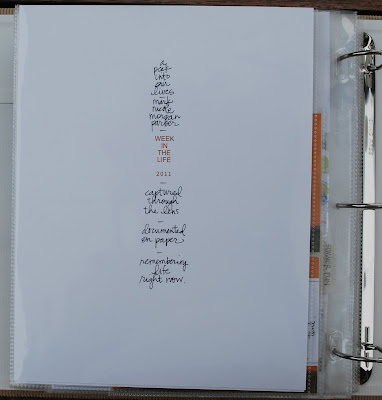 a
peek
into
our
lives
mark
nicole
morgan
parker
WEEK
IN
THE
LIFE
2011
captured
through
the lens
documented
on paper
remembering
life
right now.